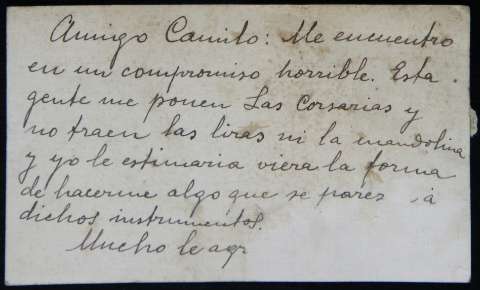 Amigo Camilo: Me encuentro
en un compromiso horrible. Esta
gente me ponen Las Corsarias y
no traen las liras ni la mandolina
y yo le estimaria viera la forma
de hacerme algo que se parez a
dichos instrumentos.
Mucho le agr